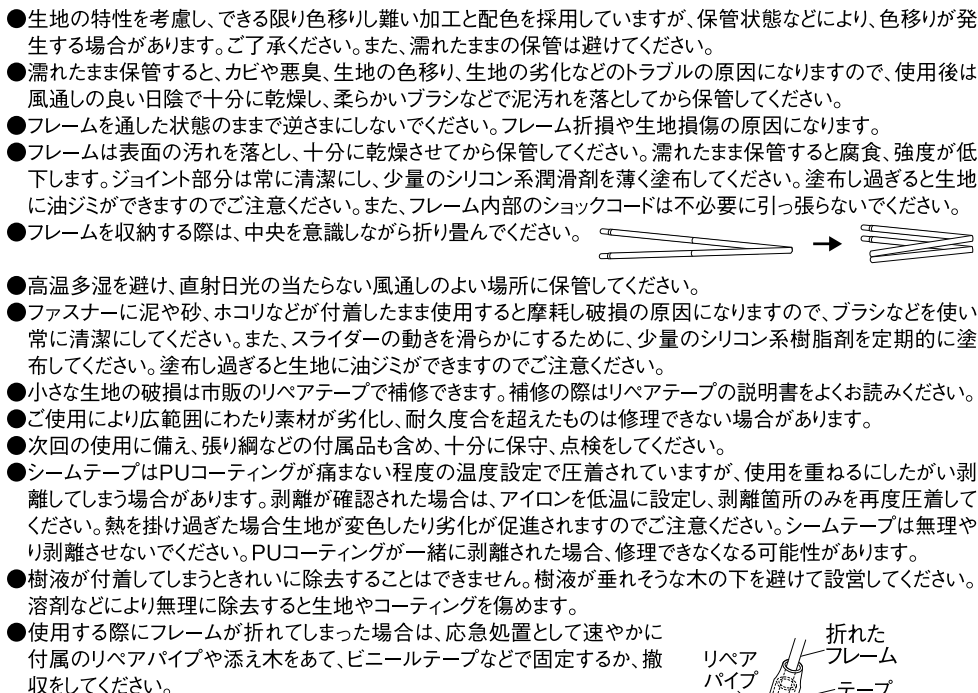 ●生地の特性を考慮し、できる限り色移りし難い加工と配色を採用していますが、保管状態などにより、色移りが発
生する場合があります。ご了承ください。また、濡れたままの保管は避けてください。
●濡れたまま保管すると、カビや悪臭、生地の色移り、生地の劣化などのトラブルの原因になりますので、使用後は
風通しの良い日陰で十分に乾燥し、柔らかいブラシなどで泥汚れを落としてから保管してください。
●フレームを通した状態のままで逆さまにしないでください。フレーム折損や生地損傷の原因になります。
●フレームは表面の汚れを落とし、十分に乾燥させてから保管してください。濡れたまま保管すると腐食、強度が低
下します。ジョイント部分は常に清潔にし、少量のシリコン系潤滑剤を薄く塗布してください。塗布し過ぎると生地
に油ジミができますのでご注意ください。また、フレーム内部のショックコードは不必要に引っ張らないでください。
●フレームを収納する際は、中央を意識しながら折り畳んでください。
●高温多湿を避け、直射日光の当たらない風通しのよい場所に保管してください。
●ファスナーに泥や砂、ホコリなどが付着したまま使用すると摩耗し破損の原因になりますので、ブラシなどを使い
常に清潔にしてください。また、スライダーの動きを滑らかにするために、少量のシリコン系樹脂剤を定期的に塗
布してください。塗布し過ぎると生地に油ジミができますのでご注意ください。
●小さな生地の破損は市販のリペアテープで補修できます。補修の際はリペアテープの説明書をよくお読みください。
●ご使用により広範囲にわたり素材が劣化し、耐久度合を超えたものは修理できない場合があります。
●次回の使用に備え、張り綱などの付属品も含め、十分に保守、点検をしてください。
●シームテープはPUコーティングが痛まない程度の温度設定で圧着されていますが、使用を重ねるにしたがい剥
離してしまう場合があります。剥離が確認された場合は、アイロンを低温に設定し、剥離箇所のみを再度圧着して
ください。熱を掛け過ぎた場合生地が変色したり劣化が促進されますのでご注意ください。シームテープは無理や
り剥離させないでください。PUコーティングが一緒に剥離された場合、修理できなくなる可能性があります。
●樹液が付着してしまうときれいに除去することはできません。樹液が垂れそうな木の下を避けて設営してください。
溶剤などにより無理に除去すると生地やコーティングを傷めます。
●使用する際にフレームが折れてしまった場合は、応急処置として速やかに
付属のリペアパイプや添え木をあて、ビニールテープなどで固定するか、撤
収をしてください。
折れた
フレーム
リペア
パイプ
テープ